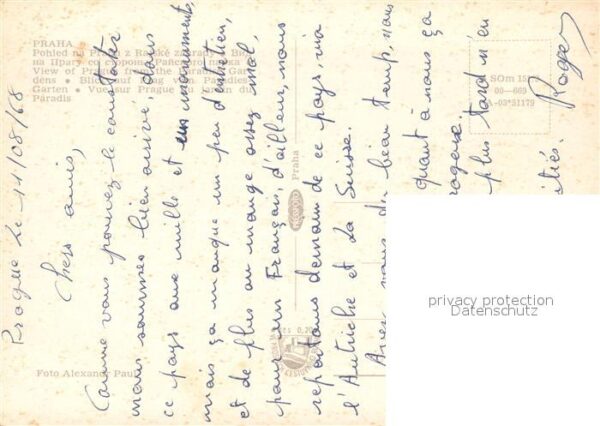 PRAHA
Pohled na Prahu z Rajské zahrady • Вид
на Прагу со стороны
View of Prague from the Paradis Gar-
dens • Blick auf Prag vom Paradies-
Garten • Vue sur Prague du Jardin du
Paradis
SOm 15
00—669
A-03*51179
Praha
PRESSFOTO
0,20
Foto Alexandr Paul
Prague le 14/08/68
Chers amis,
Comme vous pouvez le constater
nous sommes bien arrivé, dans
ce pays aux mille et un monuments
mais ça manque un peu d'entretien,
et de plus on mange assez mal,
pour un Français, d'ailleurs, nous
repartons demain de ce pays via
l'Autriche et la Suisse.
Avez vous du beau temps, nous
quant à nous ça
plus tard m'en
Roger
privacy protection
Datenschutz